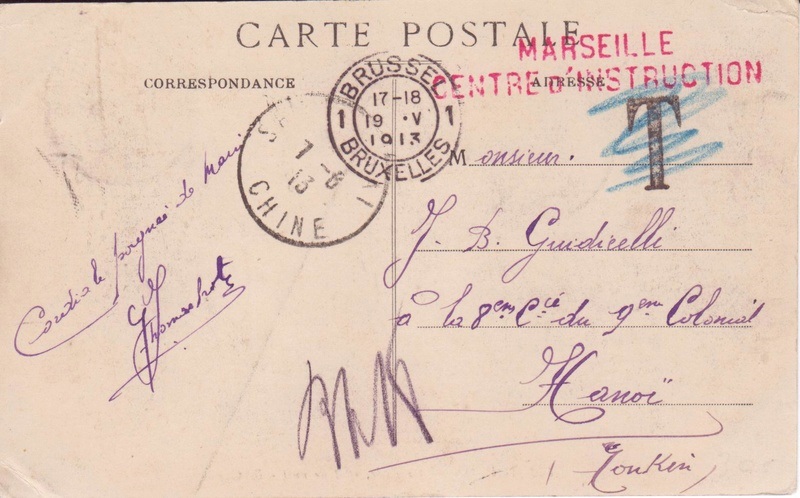 CARTE POSTALE
MARSEILLE
CENTRE D'INSTRUCTION
CORRESPONDANCE
ADRESSE
BRUSSEL
1 17-18 1
19 V
1913
BRUXELLES
7-6
13
CHINE
T
Monsieur.
J. B. Guidicelli
à la 8em Cie du 9em Colonial
Hanoï
Tonkin
Cordiale poignée de main